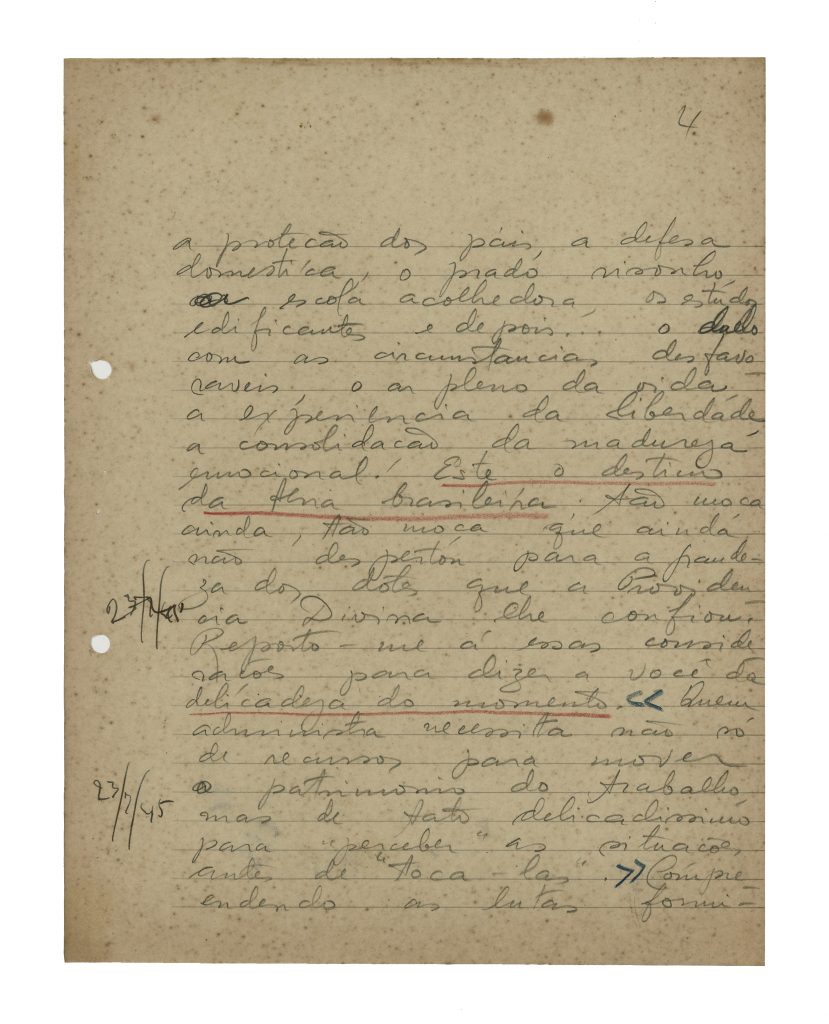 4
a protecão dos páis, a difesa
domestica, o prado risonho,
escola acolhedora, os estudos
edificantes e depois... o duelo
com as circumstancias desfavo
raveis o ar pleno da vida –
a experiencia da liberdade
a consolidacão da madureza
emocional! Este o destino
da terra brasileira. Tão moca
ainda, tão moca que ainda
não despertou para a grande-
za dos dotes que a Providen
cia Divina lhe confiou.
23/7/45
Reporto-me á essas conside
racões para dizer a você da
delicadeza do momento. << Quem
administra necessita não só
de recursos para mover
o patrimonio do trabalho
23/7/45
mas de tato delicadissimo
para "perceber" as situacões,
antes de "toca-las". >> Compre
endendo as lutas formi-